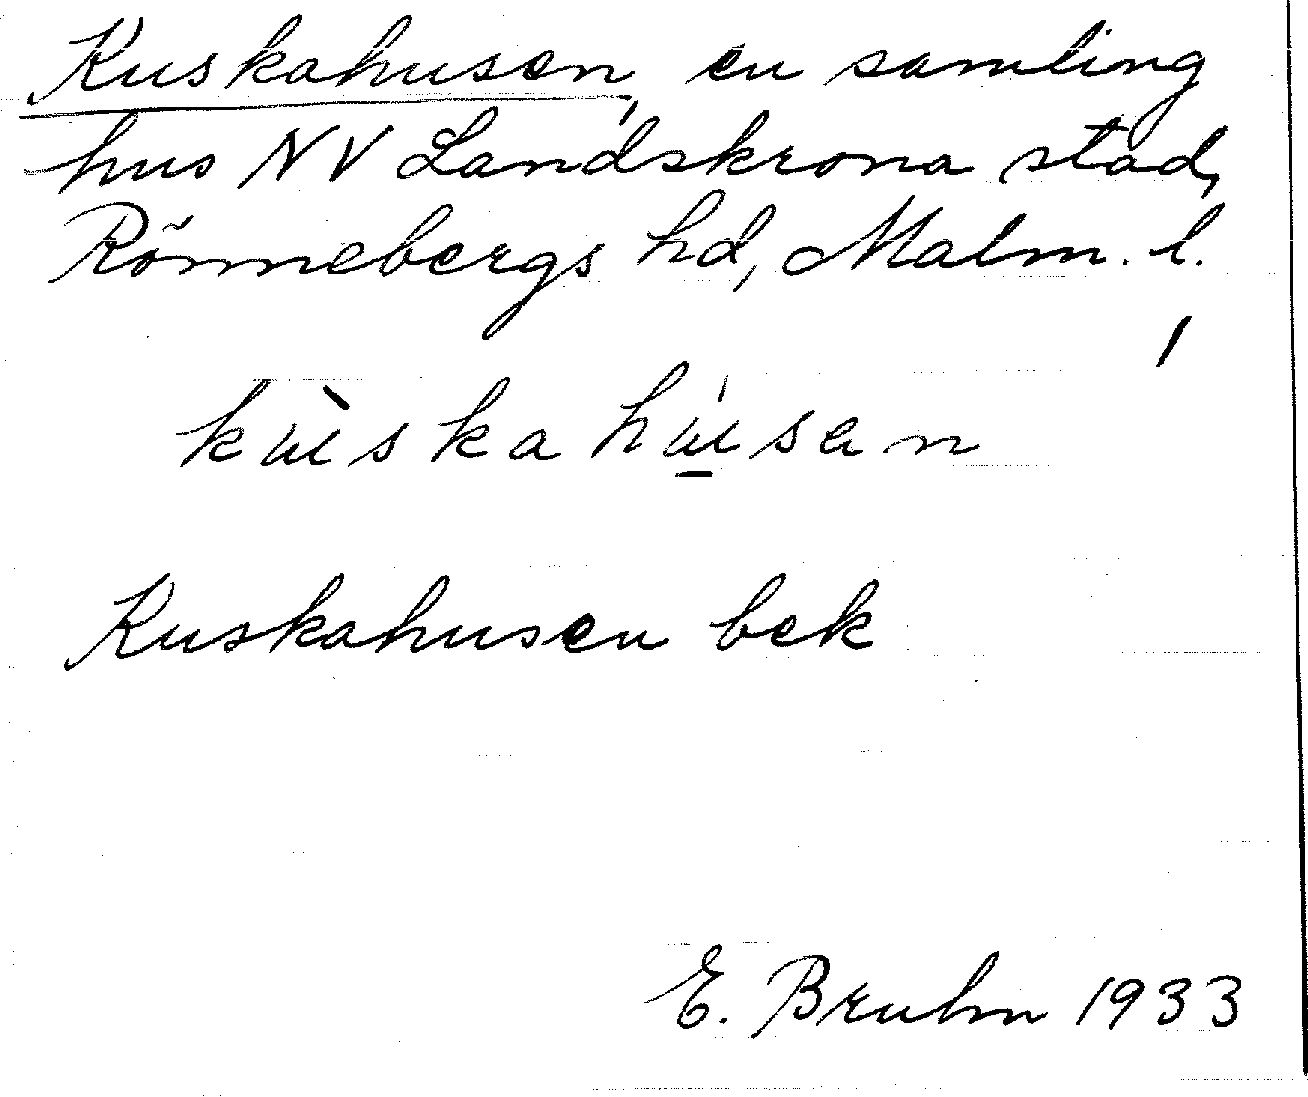 Kuskahusen, en samling
hus NV Landskrona stad,
Rönnebergs hd, Malm. l.
kɯ̀skahɯ́sən
Kuskahusen bek
E. Bruhn 1933